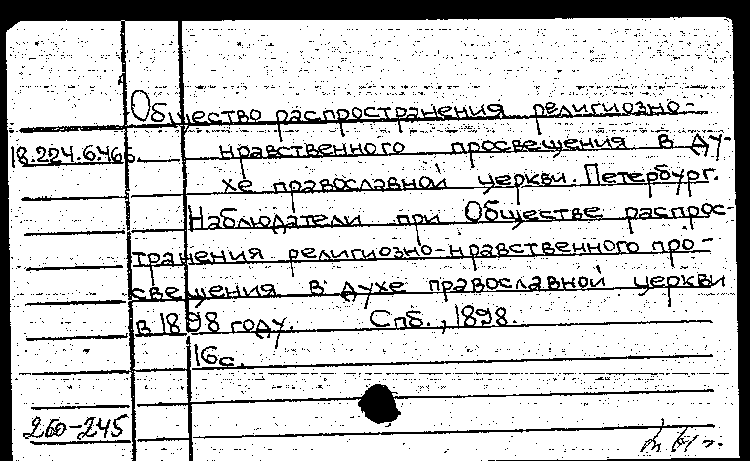 Общество распространения религиозно-
18.224.6.46б. нравственного просвещения в ду-
хе православной церкви. Петербург.
Наблюдатели при Обществе распрос-
транения религиозно-нравственного про-
свещения в духе православной церкви
в 1898 году. Спб., 1898.
16с.
260-245